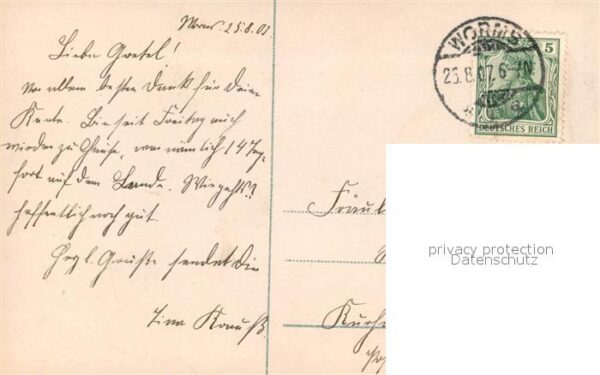 Worms. 25.8.07.
Liebe Gretel!
Vor allem besten Dank für Deine
Karte. Bin seit Freitag auch
wieder zu Hause, war nämlich 14 Tag
fort auf dem Lande. Wie geht's?
hoffentlich noch gut.
Herzl. Grüße sendet Dir
Tina Krauß.
WORMS
25.8.07. 6-7N.
5
DEUTSCHES REICH
Fräul
privacy protection
Datenschutz